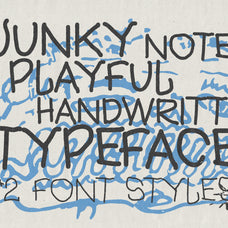 JUNKY NOTE
PLAYFUL
HANDWRITT
TYPEFACE
2 FONT STYLES